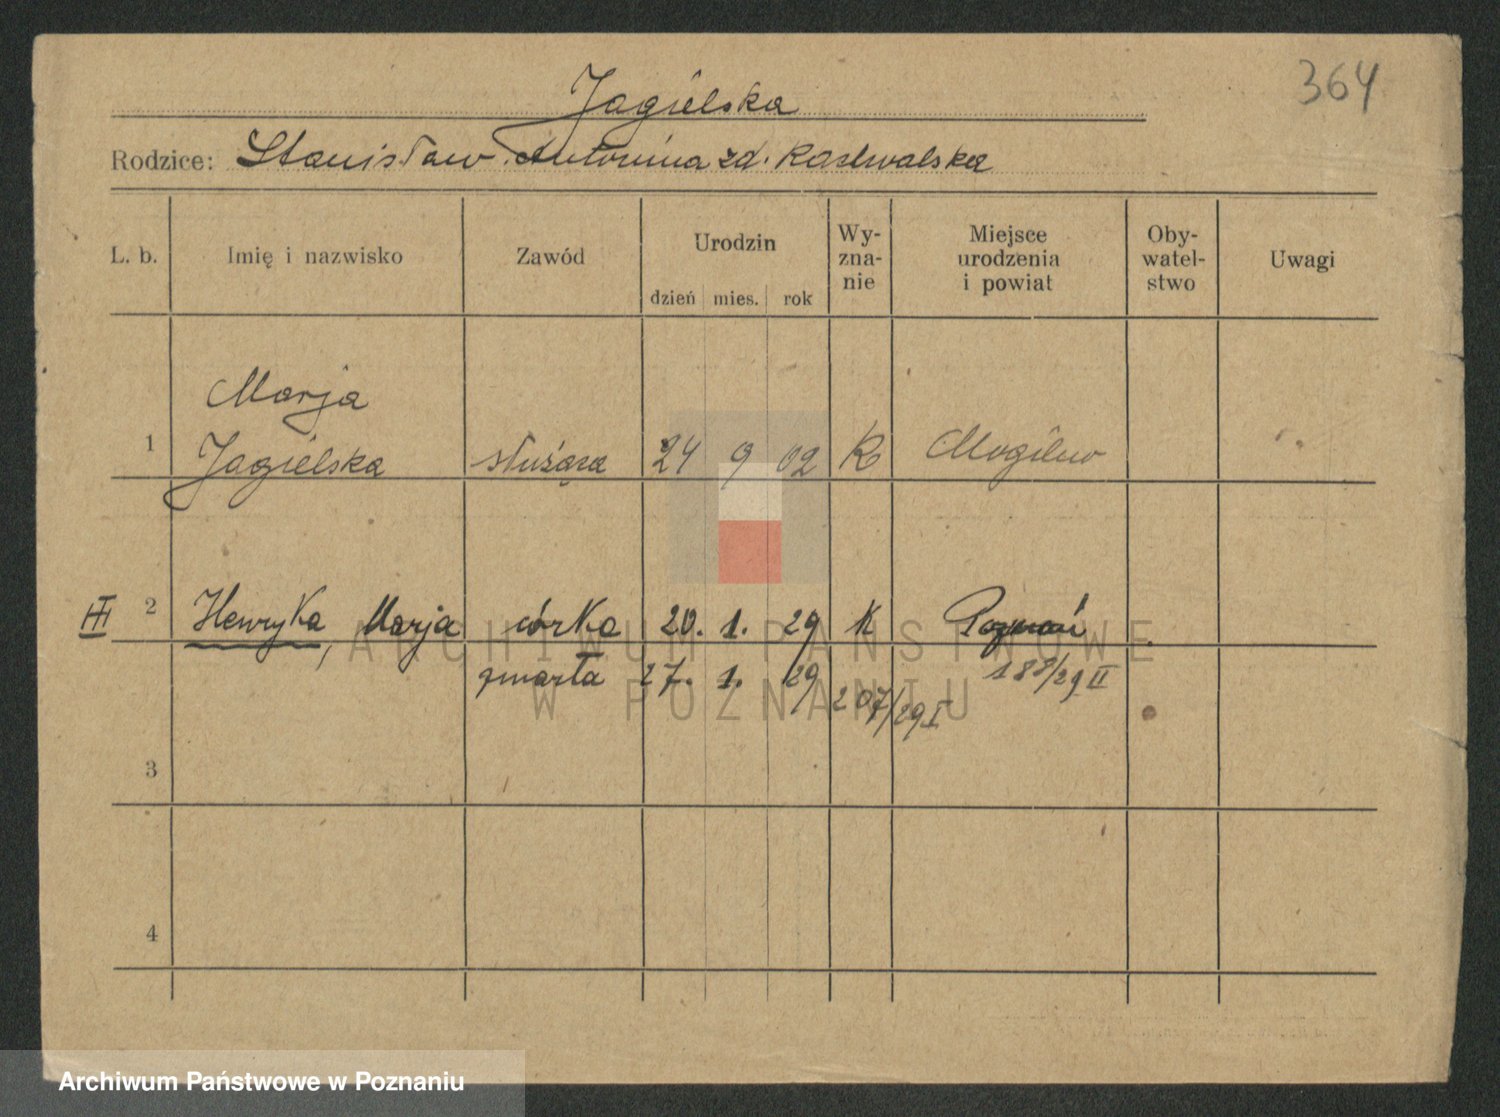 364
Jagielska
Rodzice: Stanisław. Antonina zd.
L. b.
Imię i nazwisko
Zawód
Urodzin
dzień mies. rok
Wy-
zna-
nie
Miejsce
urodzenia
i powiat
Oby-
watel-
stwo
Uwagi
Marja
1 Jagielska służąca 24 9 02 K Mogilno
III 2 Henryka, Marja córka 20. 1. 29 K Poznań
zmarła 27. 1. 29 188/29 II
207/29 I
3
4
ARCHIWUM PAŃSTWOWE
W POZNANIU
Archiwum Państwowe w Poznaniu